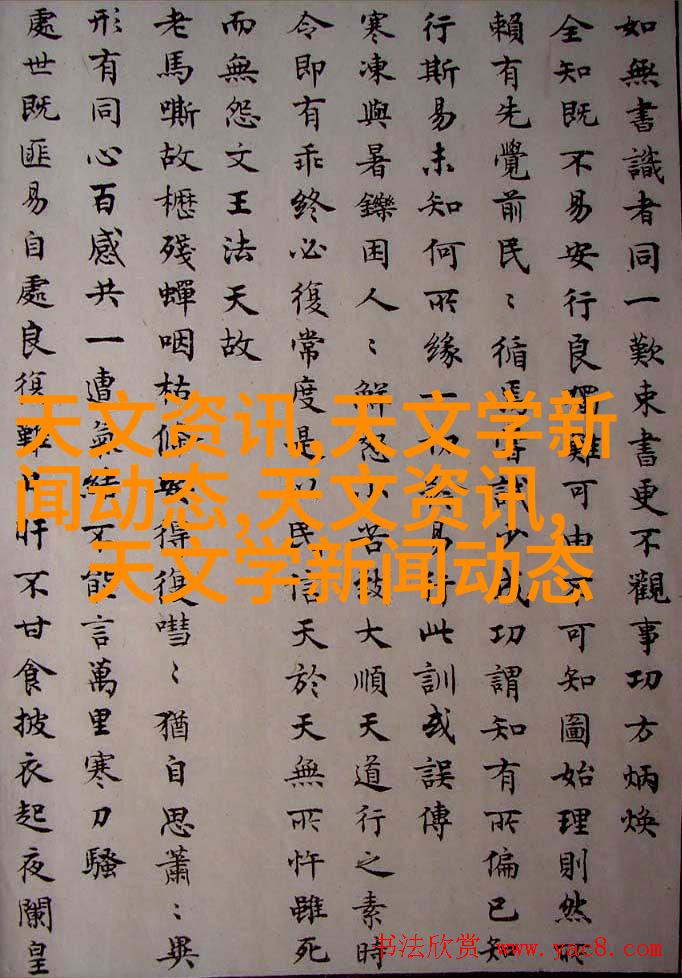 如無書識者同一歎束書更不觀事功方炳煥
全知既不易安行良難可由不可知圖始理則然所
賴有先覺前民〻循馬試少功謂知有所偏已知
行斯易未知何所緣一易行此訓或誤傳
寒凍與暑鑠困人〻解怨苦大順天道行之素時
令即有乖終必復常度是以民信天於天無所忤雖死
而無怨文王法天故
老馬嘶故櫪殘蟬咽枯得復嘒〻猶自思蕭〻異
形有同心百感共一遭結不能言萬里寒刀騷
處世既匪易自處良復難肝不甘食披衣起夜闌皇
天文资讯,天文学新
闻动态,天文资讯,
天文学新闻动态
书法欣赏 www.yac8.com